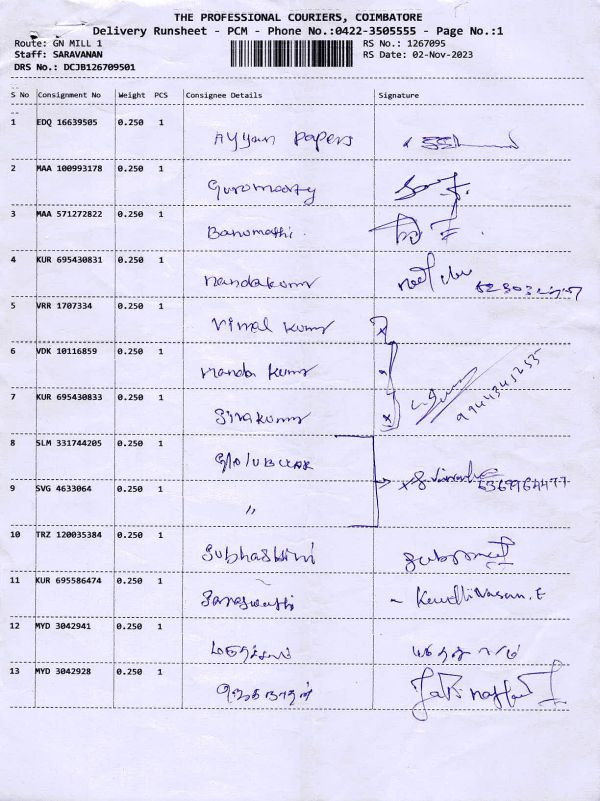 THE PROFESSIONAL COURIERS, COIMBATORE
Delivery Runsheet - PCM - Phone No.:0422-3505555 - Page No.:1
Route: GN MILL 1 RS No.: 1267095
Staff: SARAVANAN RS Date: 02-Nov-2023
DRS No.: DCJB126709501
S No Consignment No Weight PCS Consignee Details Signature
1 EDQ 16639505 0.250 1 Ayyan papers
2 MAA 100993178 0.250 1 Guromoorty
3 MAA 571272822 0.250 1 Banumathi.
4 KUR 695430831 0.250 1 nandakumar
5 VRR 1707334 0.250 1 vimal kumar
6 VDK 10116859 0.250 1 nanda kumar
7 KUR 695430833 0.250 1 Sivakumar 9944345255
8 SLM 331744205 0.250 1
9 SVG 4633064 0.250 1 〃 6369964477
10 TRZ 120035384 0.250 1 Subhashini
11 KUR 695586474 0.250 1 Saraswathi
12 MYD 3042941 0.250 1
13 MYD 3042928 0.250 1